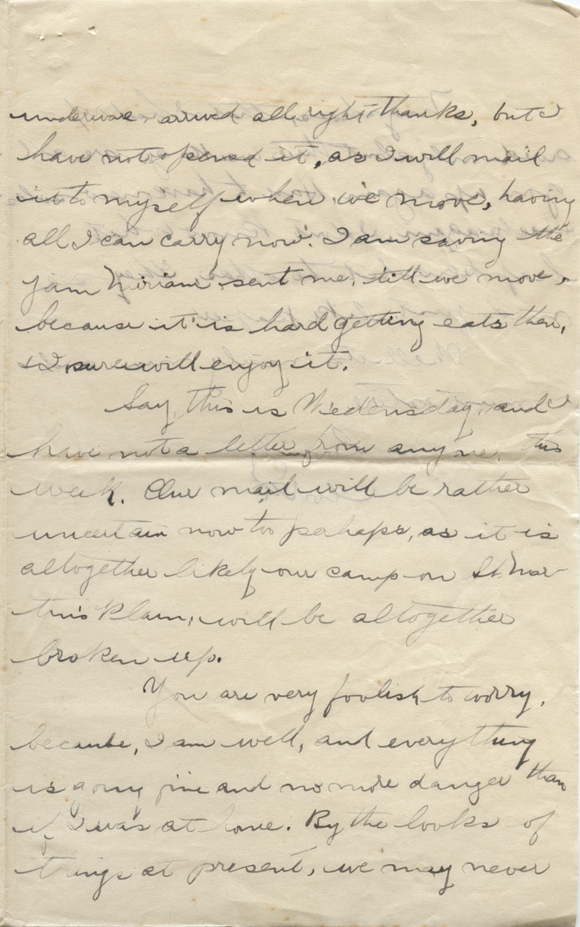 underware arrived all right thanks, but I
have not opened it, as I will mail
it to myself when we move, having
all I can carry now. I am saving the
jam Miriam sent me, till we move,
because it is hard getting eats then,
& I sure will enjoy it.
Say, this is Wedensday, and I
have not a letter from anyone this
week. Our mail will be rather
uncertain now too pahaps, as it is
altogether likely our camp on St Mar-
tin's Plain, will be altogether
broken up.
You are very foolish to worry,
because, I am well, and everything
is going fine and no more danger than
if I was at home. By the looks of
things at present, we may never